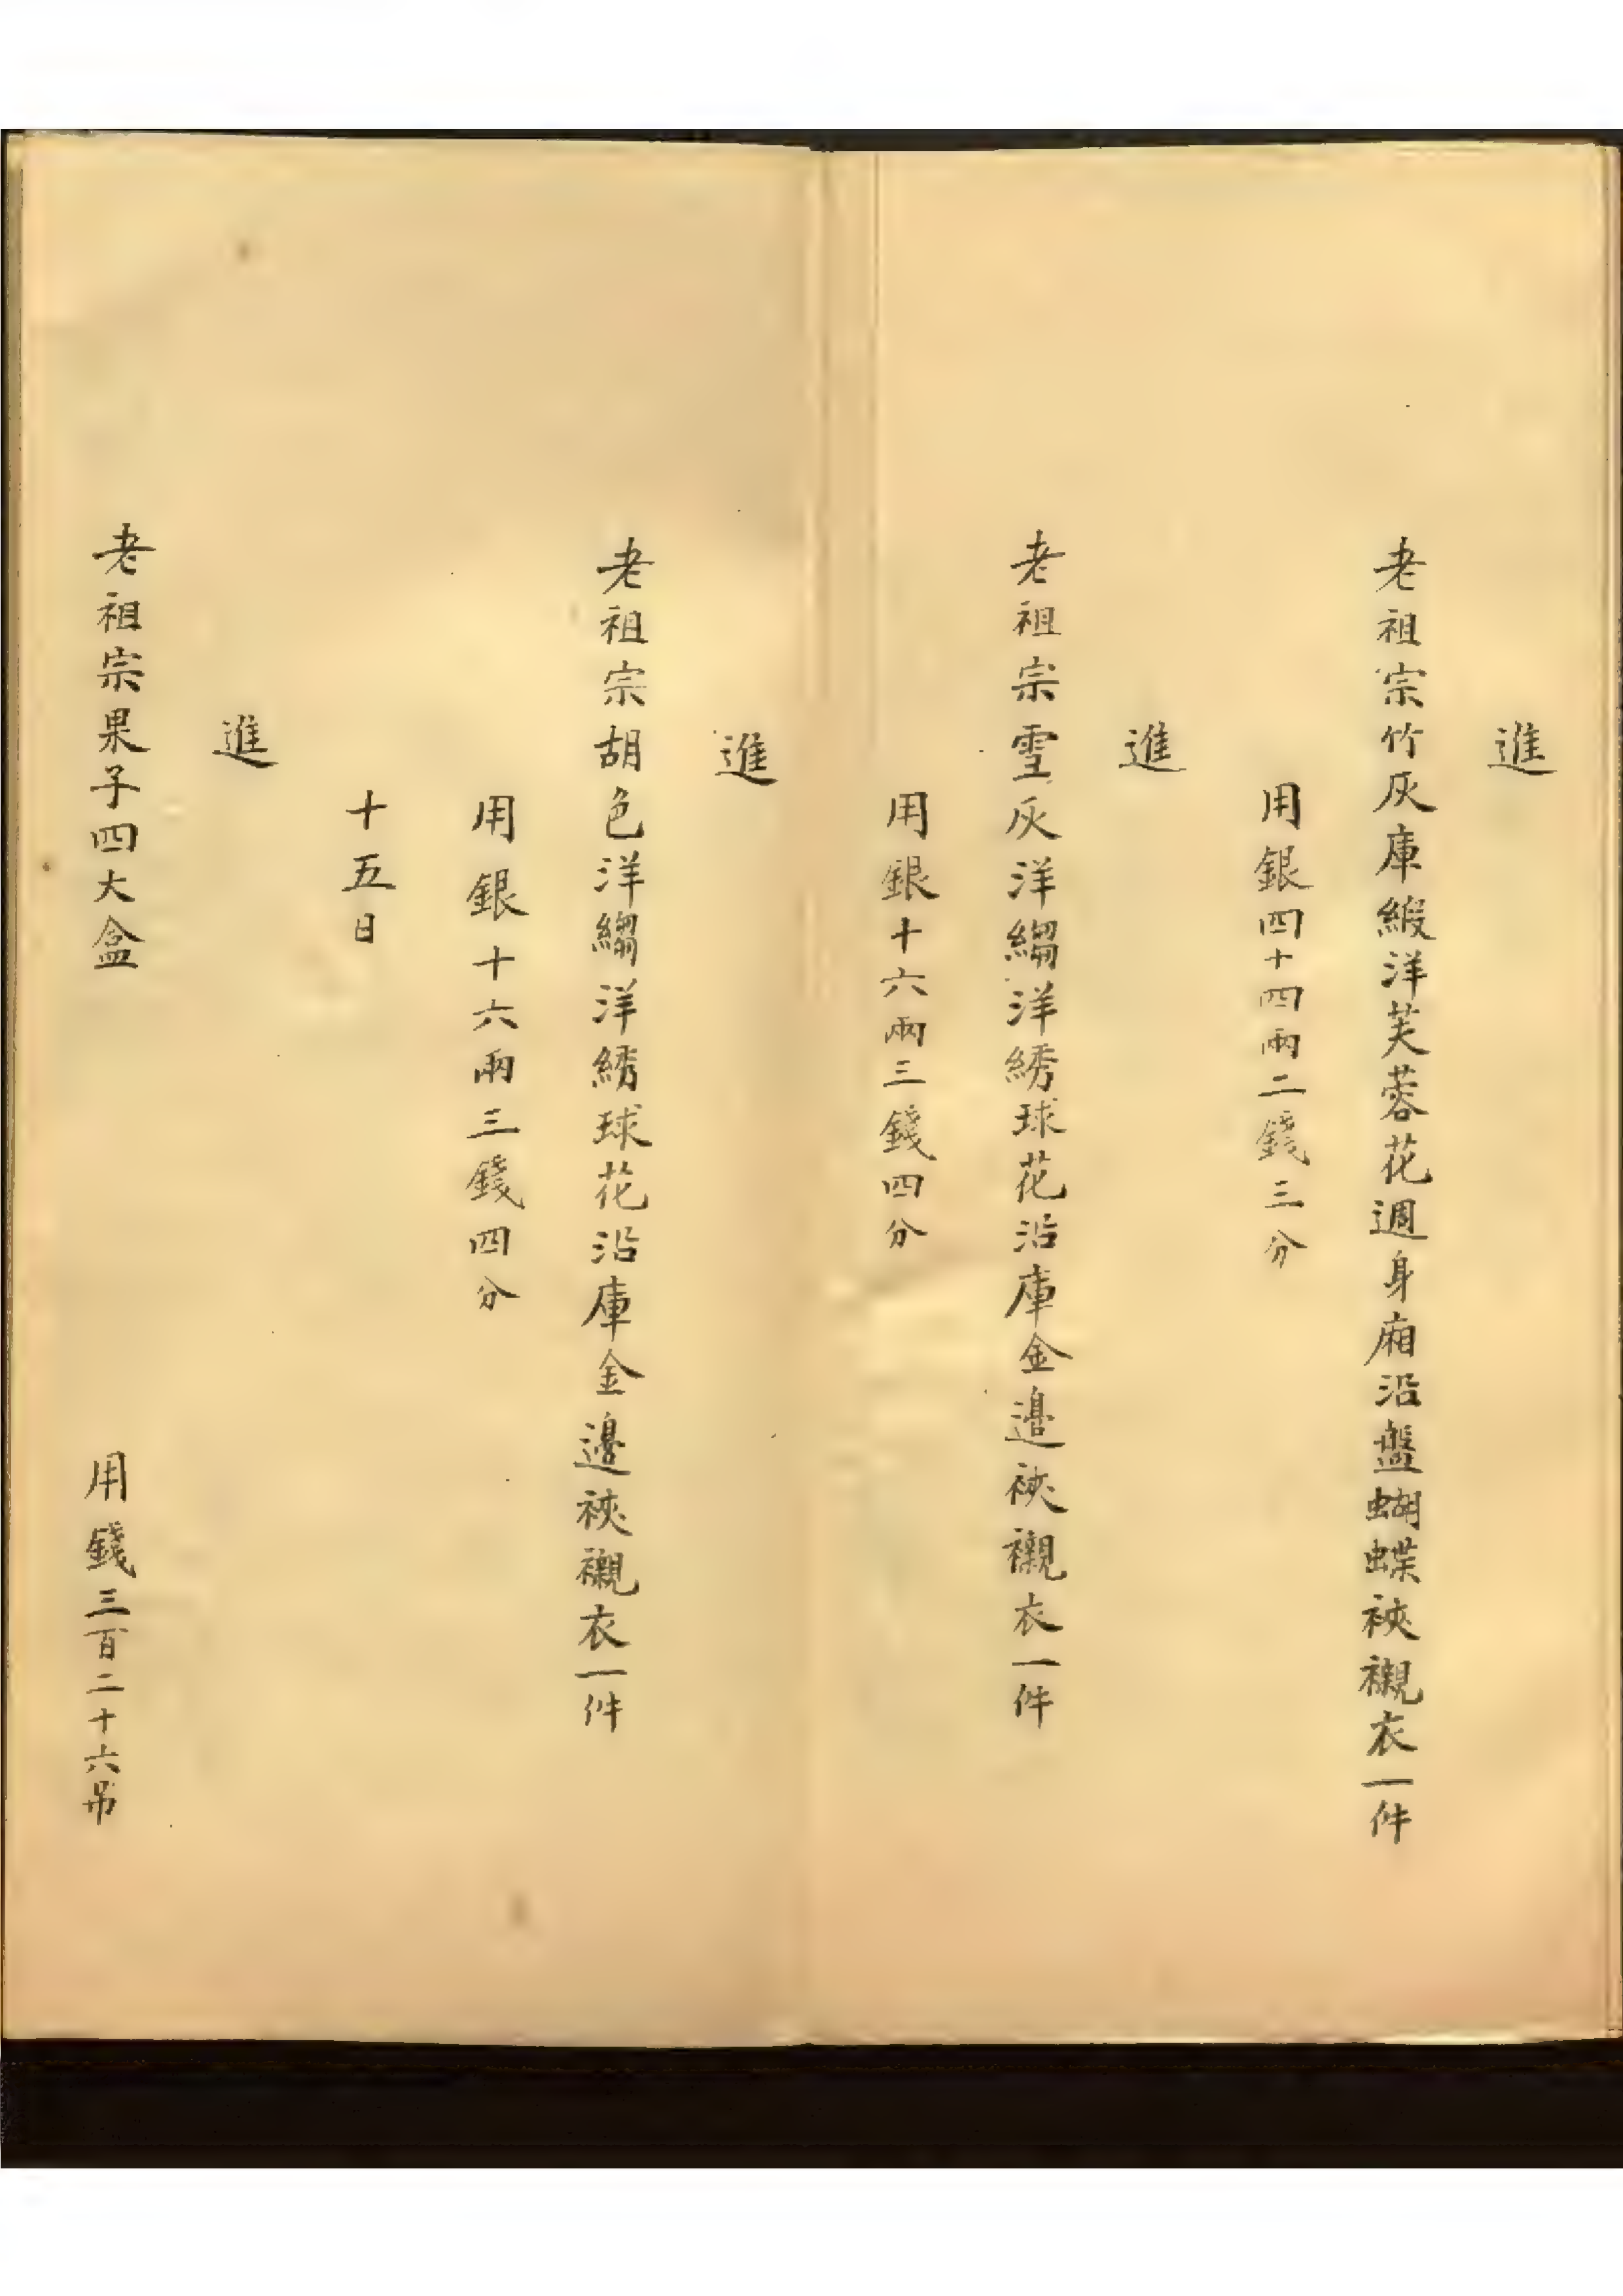 進
老祖宗竹灰庫緞洋芙蓉花週身廂沿盤蝴蝶裌襯衣一件
用銀四十四兩二錢三分
進
老祖宗雪灰洋縐洋綉球花沿庫金邊裌襯衣一件
用銀十六兩三錢四分
進
老祖宗胡色洋縐洋綉球花沿庫金邊裌襯衣一件
用銀十六兩三錢四分
十五日
進
老祖宗果子四大盒 用錢三百二十六吊